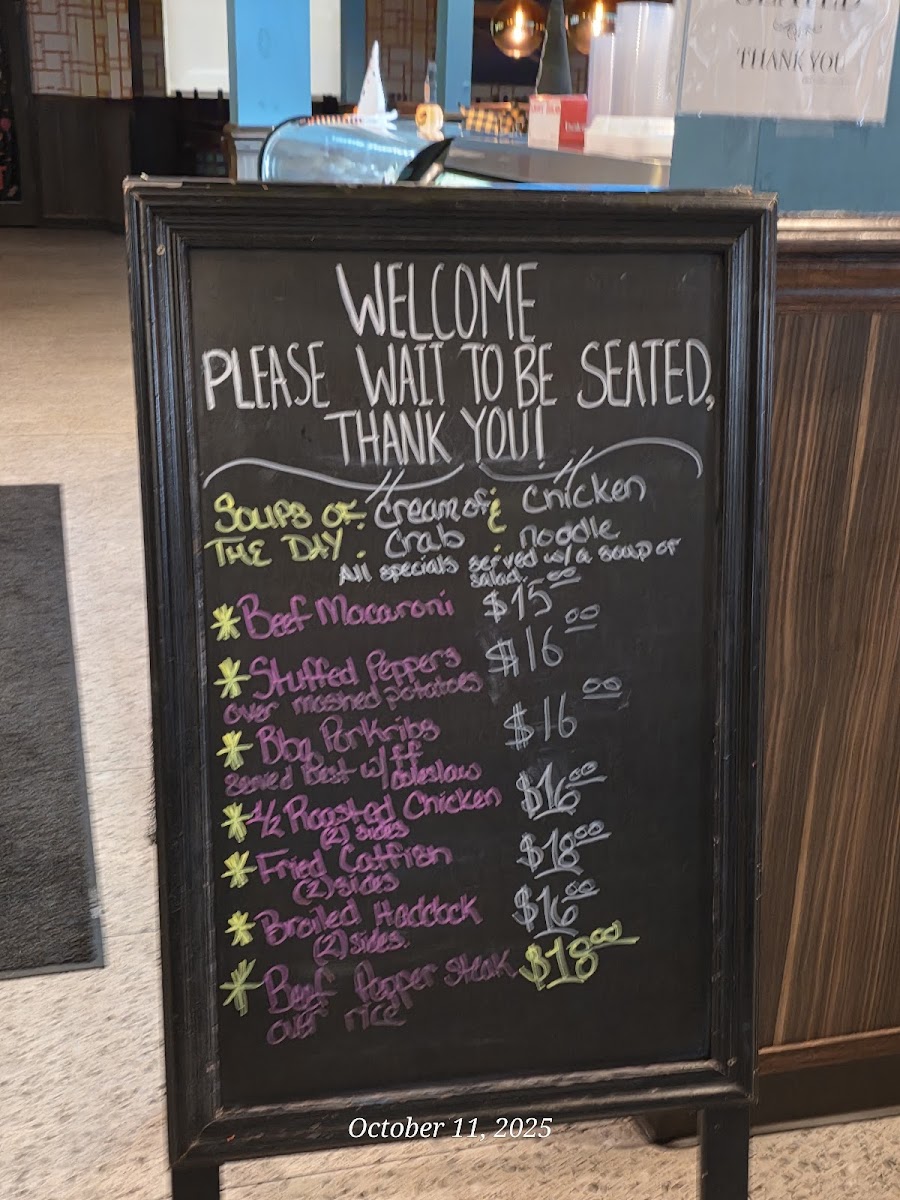 THANK YOU
WELCOME
PLEASE WAIT TO BE SEATED,
THANK YOU!
SOUPS OF: Cream of & Chicken
THE DAY: Crab noodle
All specials served w/a soup or
salad.
* Beef Macaroni $15.00
* Stuffed Peppers $16.00
over mashed potatoes
* Bbq Pork ribs $16.00
served Best w/ff
coleslaw
* 1/2 Roasted Chicken $16.00
(2) sides
* Fried Catfish $18.00
(2) sides
* Broiled Haddock $16.00
(2) sides.
* Beef Pepper steak $18.00
over rice
October 11, 2025